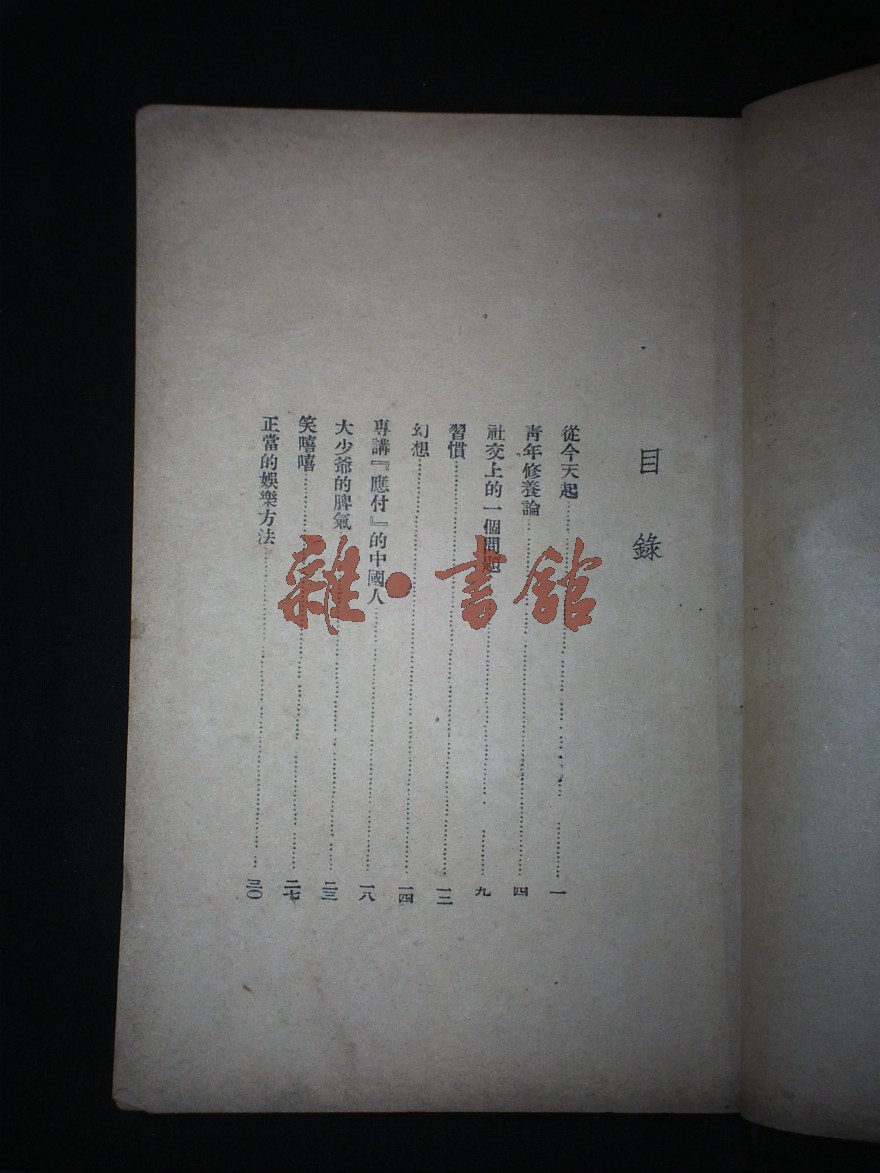 目錄
從今天起……一
青年修養論……四
社交上的一個問題……九
習慣……一二
幻想……一四
專講『應付』的中國人……一八
大少爺的脾氣……二三
笑嘻嘻……二七
正當的娛樂方法……三〇
雜·書館